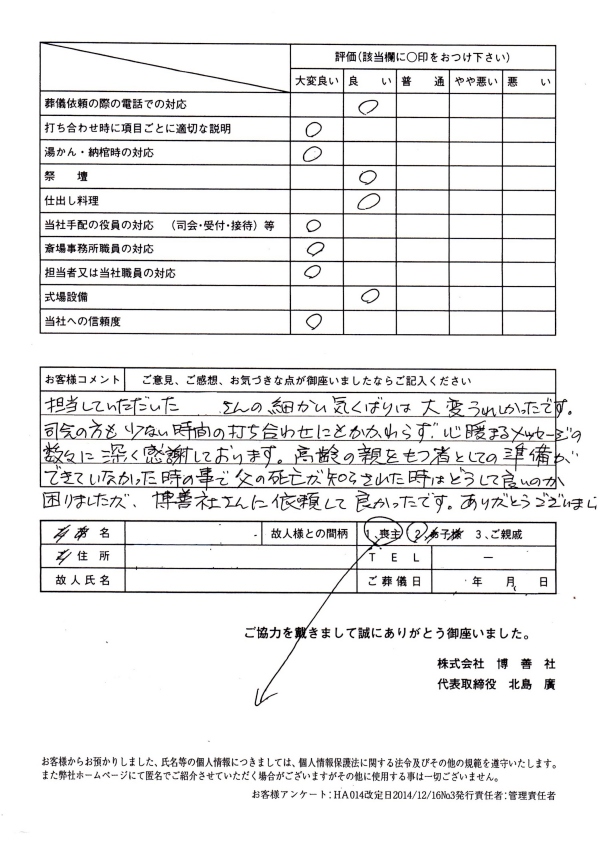 評価(該当欄に〇印をおつけ下さい)
大変良い 良い 普通 やや悪い 悪い
葬儀依頼の際の電話での対応
打ち合わせ時に項目ごとに適切な説明
湯かん・納棺時の対応
祭壇
仕出し料理
当社手配の役員の対応 (司会・受付・接待)等
斎場事務所職員の対応
担当者又は当社職員の対応
式場設備
当社への信頼度
お客様コメント ご意見、ご感想、お気づきな点が御座いましたならご記入ください
担当していただいた さんの細かい気くばりは大変うれしかったです。
司会の方も少ない時間の打ち合わせにもかかわらず、心暖まるメッセージの
数々に深く感謝しております。高齢の親をもつ者としての準備が
できていなかった時の事で父の死亡が知らされた時はどうして良いのか
困りましたが、博善社さんに依頼して良かったです。ありがとうございまし
名 故人様との間柄 1、喪主 2、お子様 3、ご親戚
ご住所 TEL ー
故人氏名 ご葬儀日 年 月 日
ご協力を戴きまして誠にありがとう御座いました。
株式会社 博善社
代表取締役 北島 廣
お客様からお預かりしました、氏名等の個人情報につきましては、個人情報保護法に関する法令及びその他の規範を遵守いたします。
また弊社ホームページにて匿名でご紹介させていただく場合がございますがその他に使用する事は一切ございません。
お客様アンケート:HA014改定日2014/12/16No3発行責任者:管理責任者